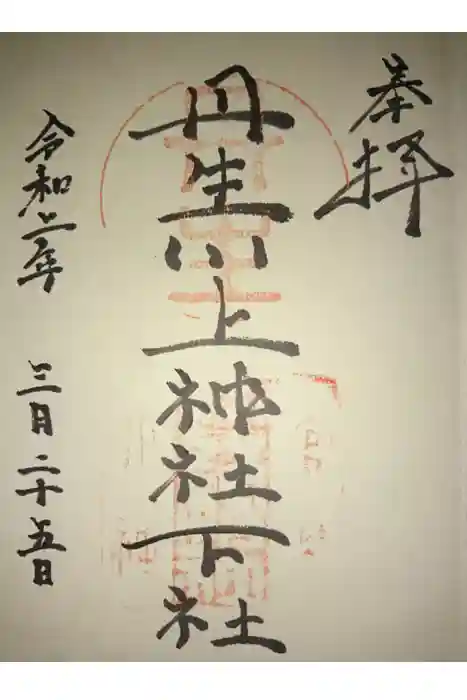 奉拝
丹生川上神社下社
令和二年 三月二十五日